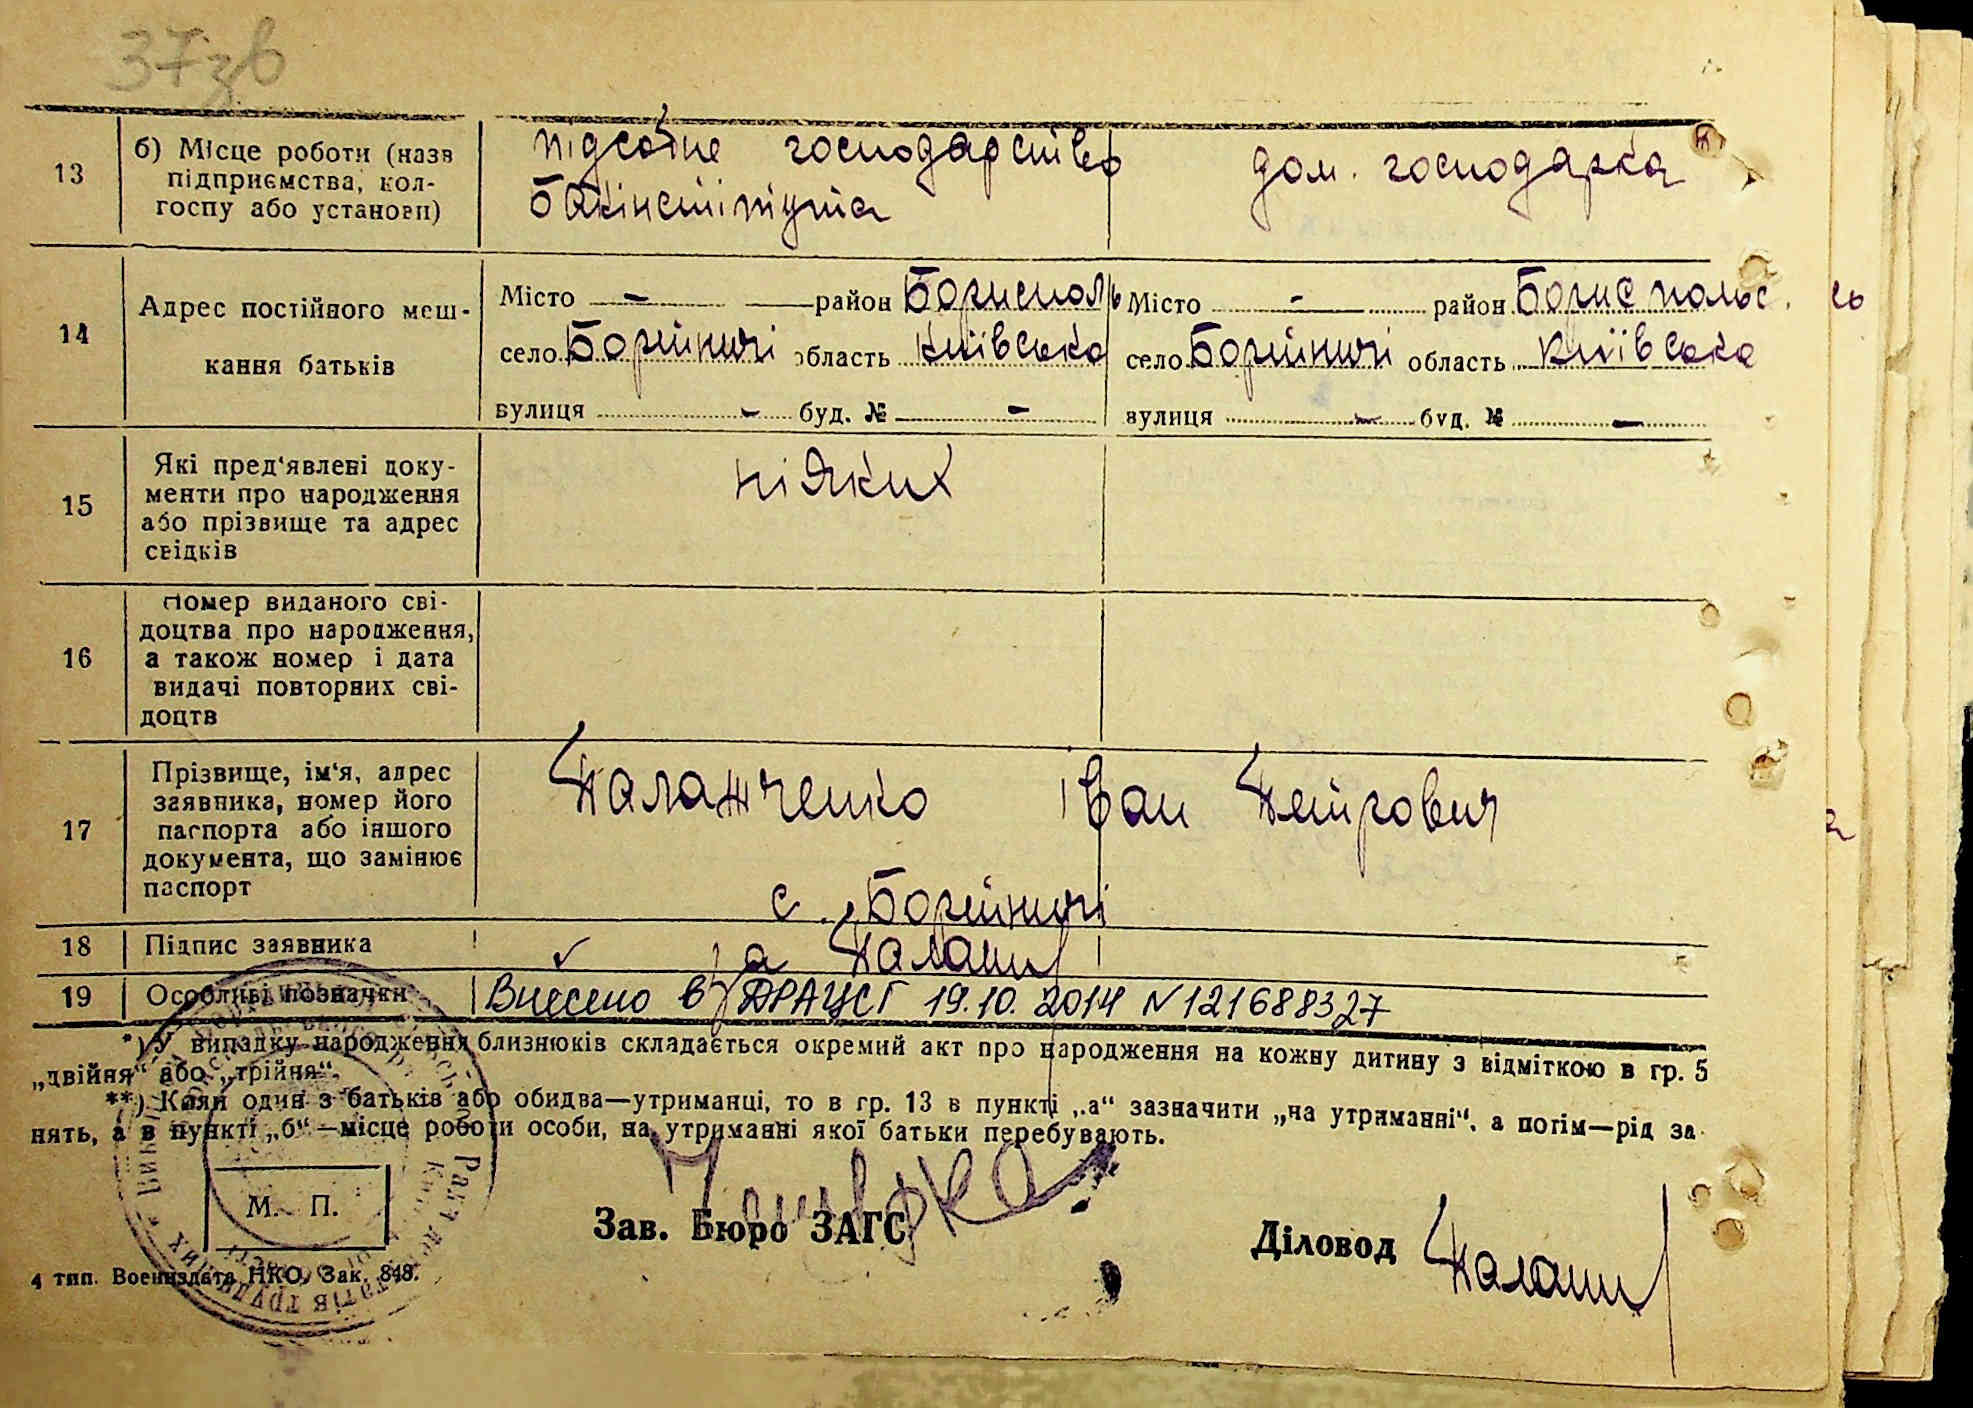 37зв
13 б) Місце роботи (назв підсобне господарство дом. господарка
підприємства, кол-
госпу або установи) Бакінститута
14 Адрес постійного меш- Місто – район Бориспольс. Місто – район Бориспольс.
кання батьків село Бортничі область Київська село Бортничі область Київська
вулиця – буд. № – вулиця – буд. № –
15 Які пред'явлені доку-
менти про народження ніяких
або прізвище та адрес
свідків
16 Номер виданого сві-
доцтва про народження,
а також номер і дата
видачі повторних сві-
доцтв
17 Прізвище, ім'я, адрес
заявника, номер його Іван Петрович
паспорта або іншого
документа, що замінює
паспорт с. Бортничі
18 Підпис заявника
19 Особливі позначки Внесено в ДРАЦСГ 19.10.2014 N121688327
*) У випадку народження близнюків складається окремий акт про народження на кожну дитину з відміткою в гр. 5
„двійня“ або „трійня“.
**) Коли один з батьків або обидва—утриманці, то в гр. 13 в пункті „а“ зазначити „на утриманні“, а потім—рід за-
нять, а в пункті „б“—місце роботи особи, на утриманні якої батьки перебувають.
М. П.
Зав. Бюро ЗАГС
Діловод
4 тип. Воениздата НКО, Зак. 848.